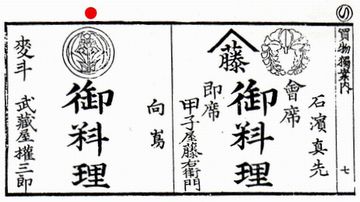 買物獨案内 七
石濱真先
會席
即席
御料理
藤
甲子屋藤右衛門
向嶌
御料理
麥斗 武藏屋權三郎